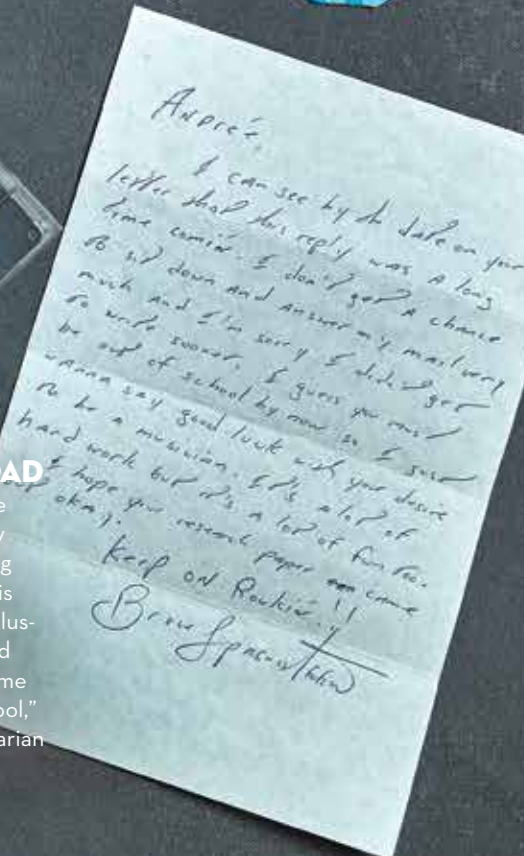 Andreé,
I can see by the date on your
letter that this reply was a long
time comin'. I don't get a chance
to sit down and answer my mail very
much and I'm sorry I didn't get
to write sooner. I guess you must
be out of school by now so I just
wanna say good luck with your desire
to be a musician. It's a lot of
hard work but it's a lot of fun too.
I hope your research paper came
out okay.
Keep on Rockin'!!
Bruce Springsteen
OAD
e
y
g
is
lus-
d
me
ool,"
arian